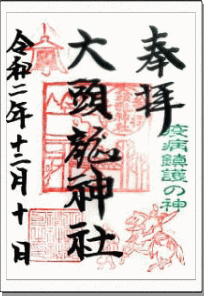 奉拝
疫病鎮護の神
大頭龍神社
令和二年十二月十日